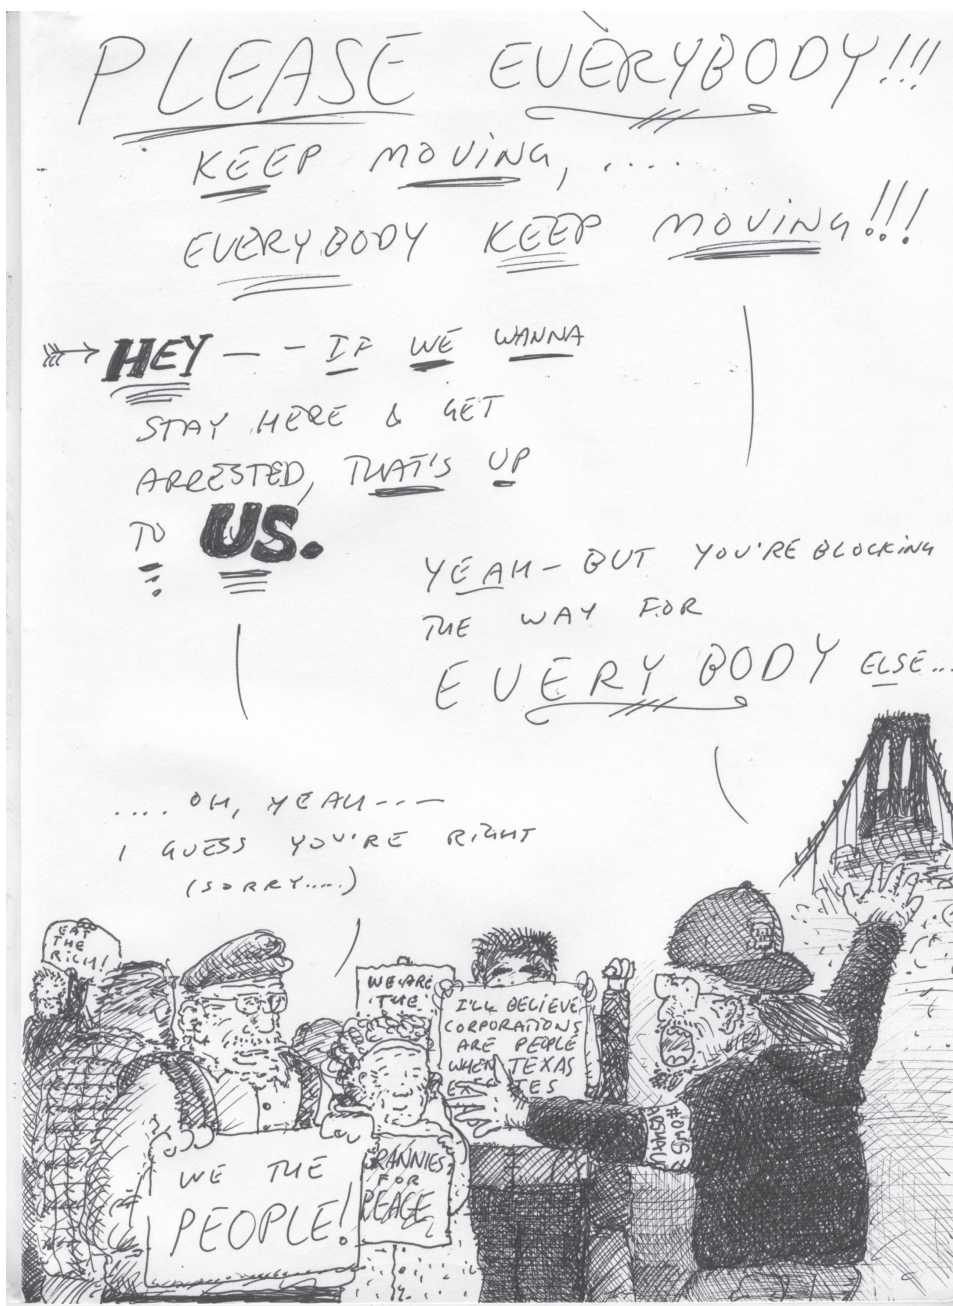 PLEASE EVERYBODY!!!
KEEP MOVING, ....
EVERYBODY KEEP MOVING!!!
HEY - - - IF WE WANNA
STAY HERE & GET
ARRESTED, THAT'S UP
TO US.
YEAH - BUT YOU'RE BLOCKING
THE WAY FOR
EVERYBODY ELSE...
.... OH, YEAH - - -
I GUESS YOU'RE RIGHT
(SORRY.....)
EAT
THE
RICH!
WE ARE
THE
I'LL BELIEVE
CORPORATIONS
ARE PEOPLE
WHEN TEXAS
WE THE
PEOPLE!
GRANNIES
FOR
PEACE